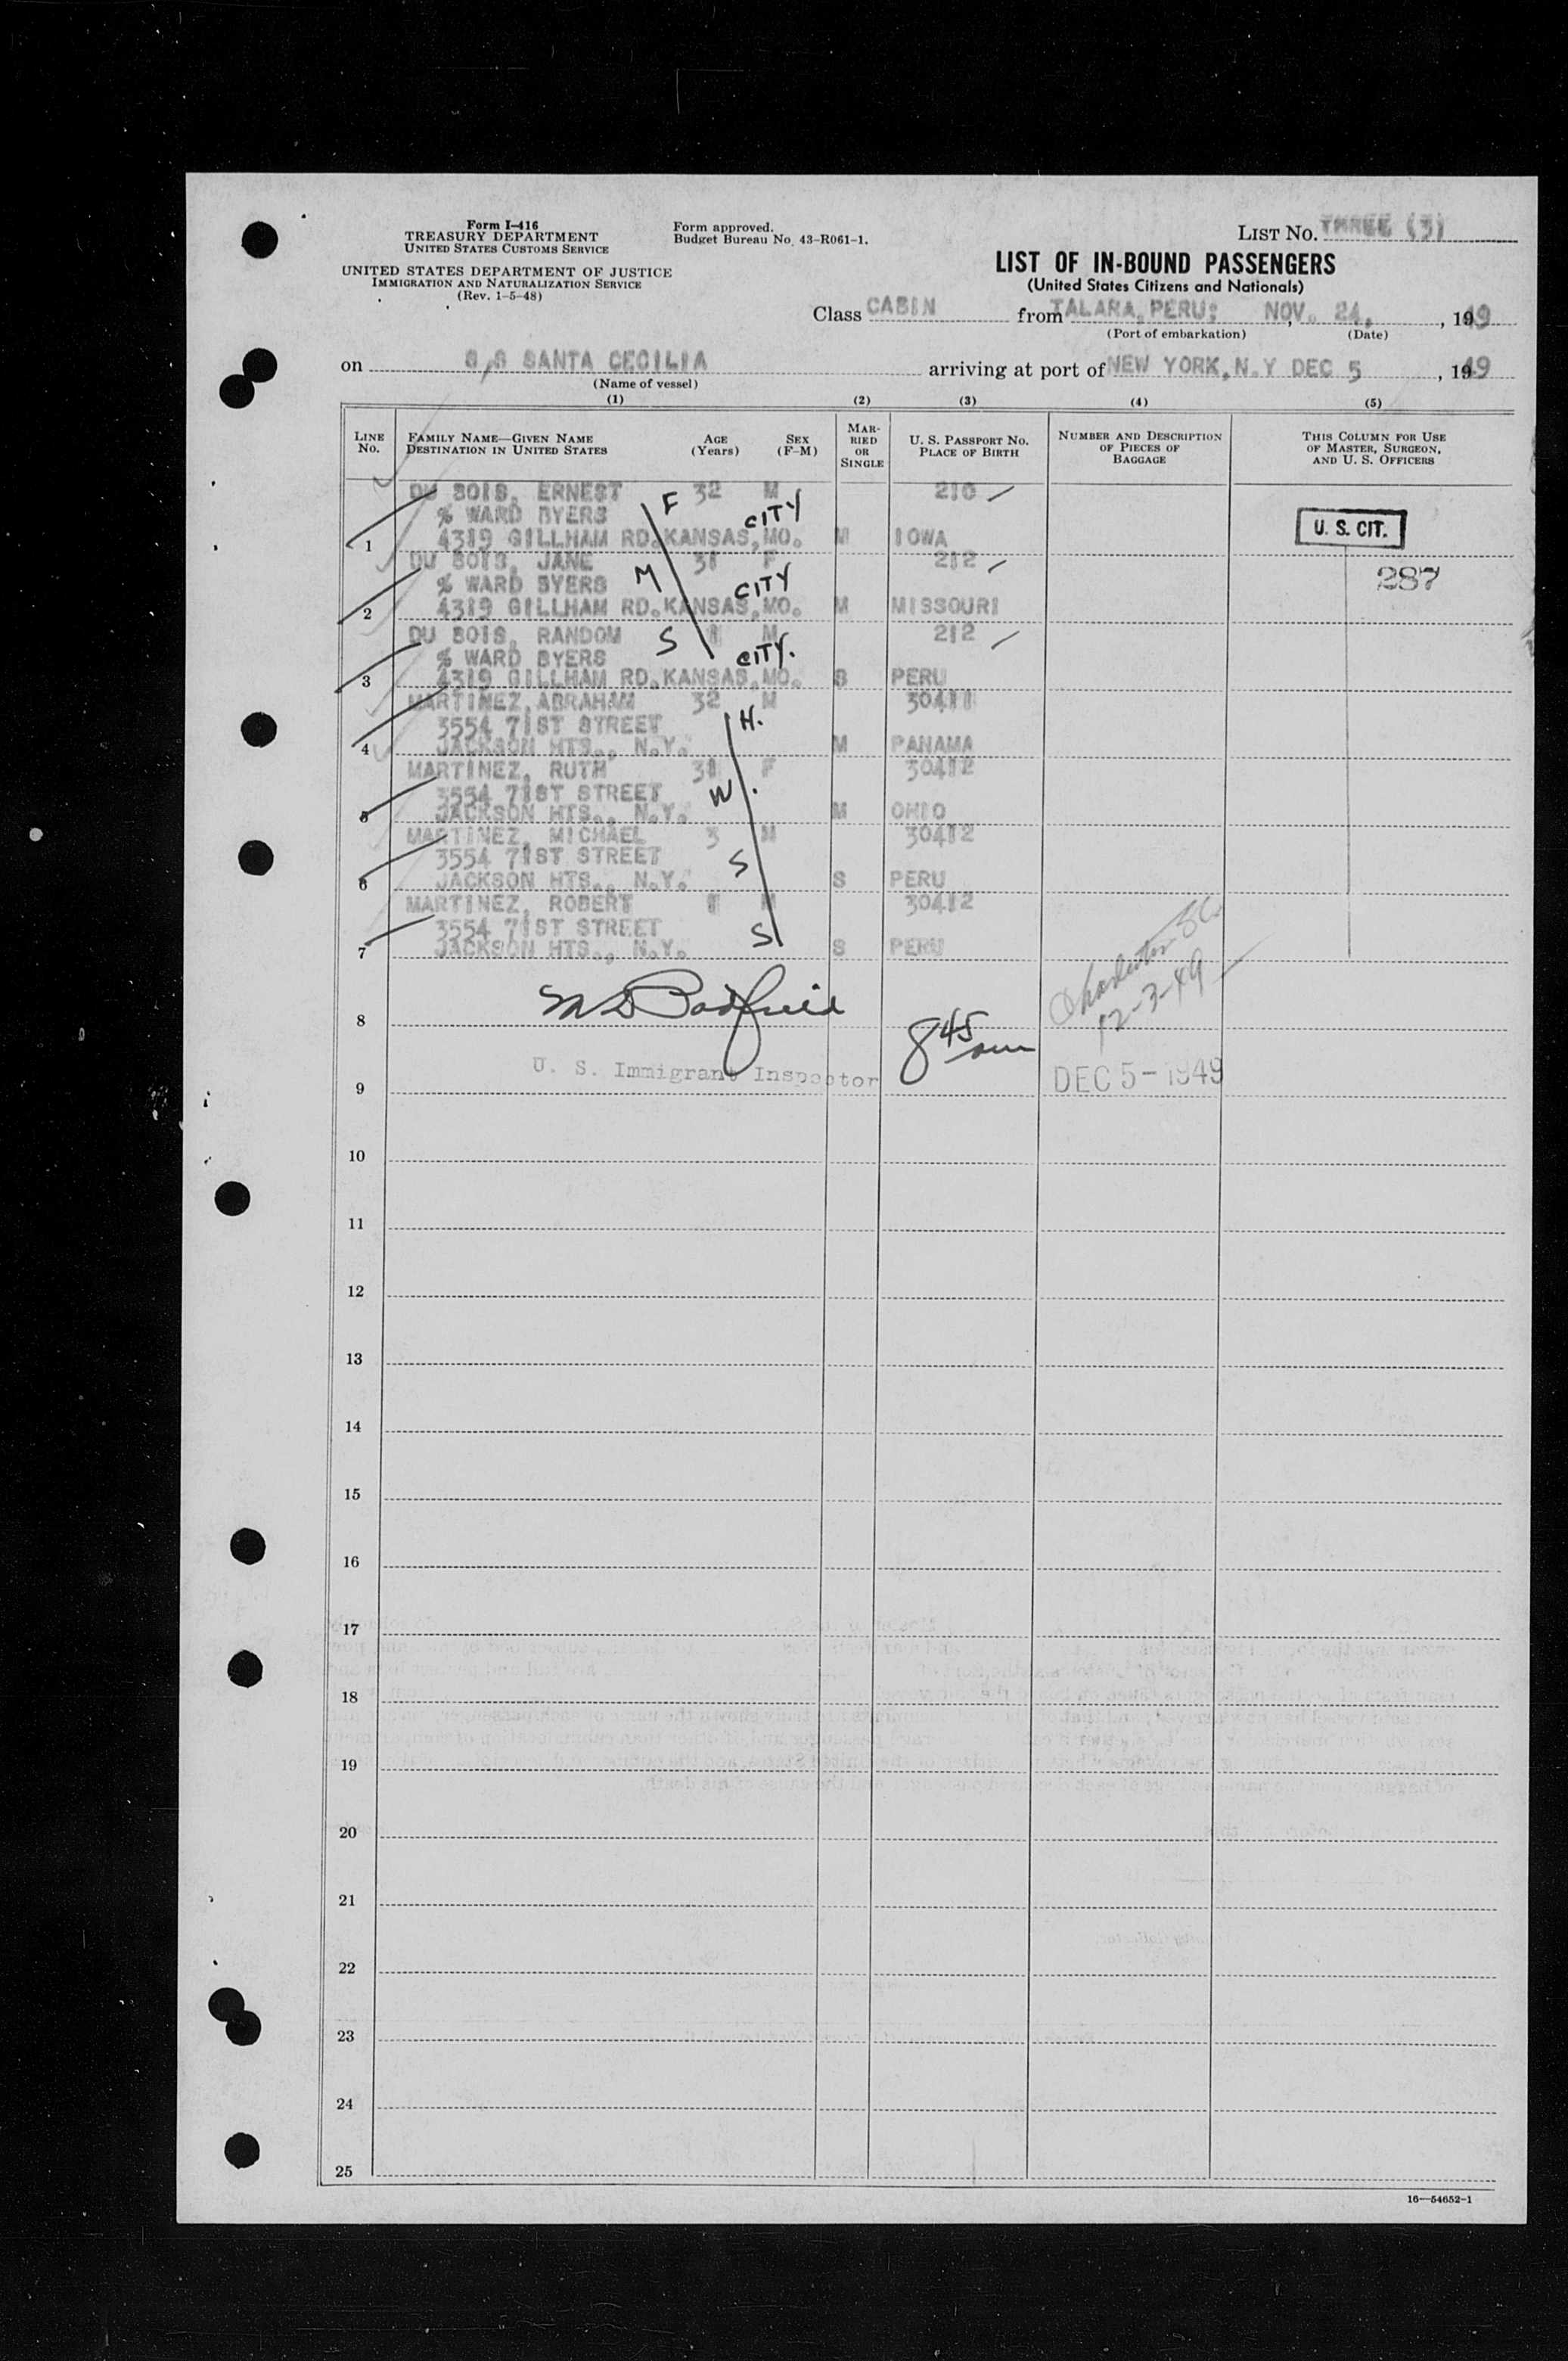 Form I-416
TREASURY DEPARTMENT
UNITED STATES CUSTOMS SERVICE
UNITED STATES DEPARTMENT OF JUSTICE
IMMIGRATION AND NATURALIZATION SERVICE
(Rev. 1-5-48)
Form approved.
Budget Bureau No. 43-R061-1.
LIST NO. THREE (3)
LIST OF IN-BOUND PASSENGERS
(United States Citizens and Nationals)
Class CABIN from TALARA, PERU; NOV. 24, , 1949
(Port of embarkation) (Date)
on S/S SANTA CECILIA arriving at port of NEW YORK, N.Y DEC 5 , 1949
(Name of vessel)
(1) (2) (3) (4) (5)
LINE NO.
FAMILY NAME—GIVEN NAME
DESTINATION IN UNITED STATES
AGE (Years)
SEX (F-M)
MARRIED OR SINGLE
U. S. PASSPORT NO.
PLACE OF BIRTH
NUMBER AND DESCRIPTION OF PIECES OF BAGGAGE
THIS COLUMN FOR USE OF MASTER, SURGEON, AND U. S. OFFICERS
DU BOIS, ERNEST F 32 M 210
% WARD BYERS CITY U. S. CIT.
1 4319 GILLHAM RD. KANSAS, MO. M IOWA
DU BOIS, JANE 31 F 212
% WARD BYERS M CITY 287
2 4319 GILLHAM RD. KANSAS, MO. M MISSOURI
DU BOIS, RANDOM S 1 M 212
% WARD BYERS CITY.
3 4319 GILLHAM RD. KANSAS, MO. S PERU
MARTINEZ, ABRAHAM 32 M 30411
3554 71ST STREET H.
4 JACKSON HTS., N.Y. M PANAMA
MARTINEZ, RUTH 31 F 30412
3554 71ST STREET W.
5 JACKSON HTS., N.Y. M OHIO
MARTINEZ, MICHAEL 3 M 30412
3554 71ST STREET S
6 JACKSON HTS., N.Y. S PERU
MARTINEZ, ROBERT 1 M 30412
3554 71ST STREET S
7 JACKSON HTS., N.Y. S PERU
Charleston SC
12-3-49
8 8 45 am
U. S. Immigrant Inspector DEC 5 - 1949
9
10
11
12
13
14
15
16
17
18
19
20
21
22
23
24
25
16—54652-1